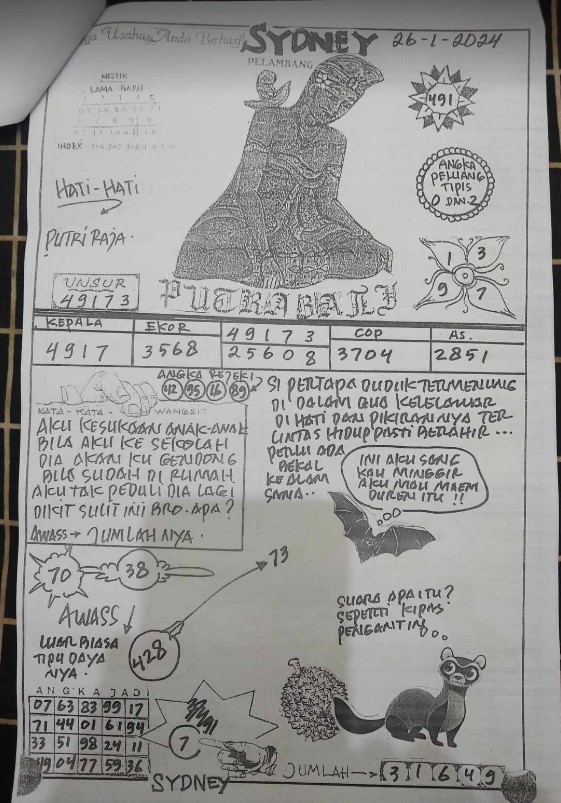 Usaha Anda Berhasil SYDNEY 26-1-2024
PELAMBANG
MISTIK
LAMA - BARU
INDEX
491
HATI-HATI
PUTRI RAJA.
ANGKA
PELUANG
TIPIS
0 DAN 2
1 3
9 7
UNSUR
49173
PUTRA BALI
KEPALA EKOR 49173 COP AS.
4917 3568 25608 3704 2851
ANGKA REJEKI
42 95 16 89
KATA - KATA - WANGSIT
AKU KESUKAAN ANAK-ANAK
BILA AKU KE SEKOLAH
DIA AKAN KU GENDONG
BILA SUDAH DI RUMAH
AKU TAK PEDULI DIA LAGI
DIKIT SULIT INI BRO. APA?
AWASS → JUMLAHNYA.
SI PERTAPA DUDUK TERMENUNG
DI DALAM GUA KELELAWAR
DI HATI DAN PIKIRANNYA TER
LINTAS HIDUP PASTI BERAHIR...
PERLU ADA
BEKAL
KE ALAM
SANA..
INI AKU SANG
KAU MINGGIR
AKU MAU MAEM
DUREN ITU !!
73
70 38
AWASS
LUAR BIASA
TIPU DAYA
NYA.
428
SUARA APA ITU?
SEPERTI KIPAS
PENGANTIN...
ANGKA JADI
07 63 83 99 17
71 44 01 61 94
33 51 98 24 11
49 04 77 59 36
7
SYDNEY
JUMLAH → 3 1 6 4 9